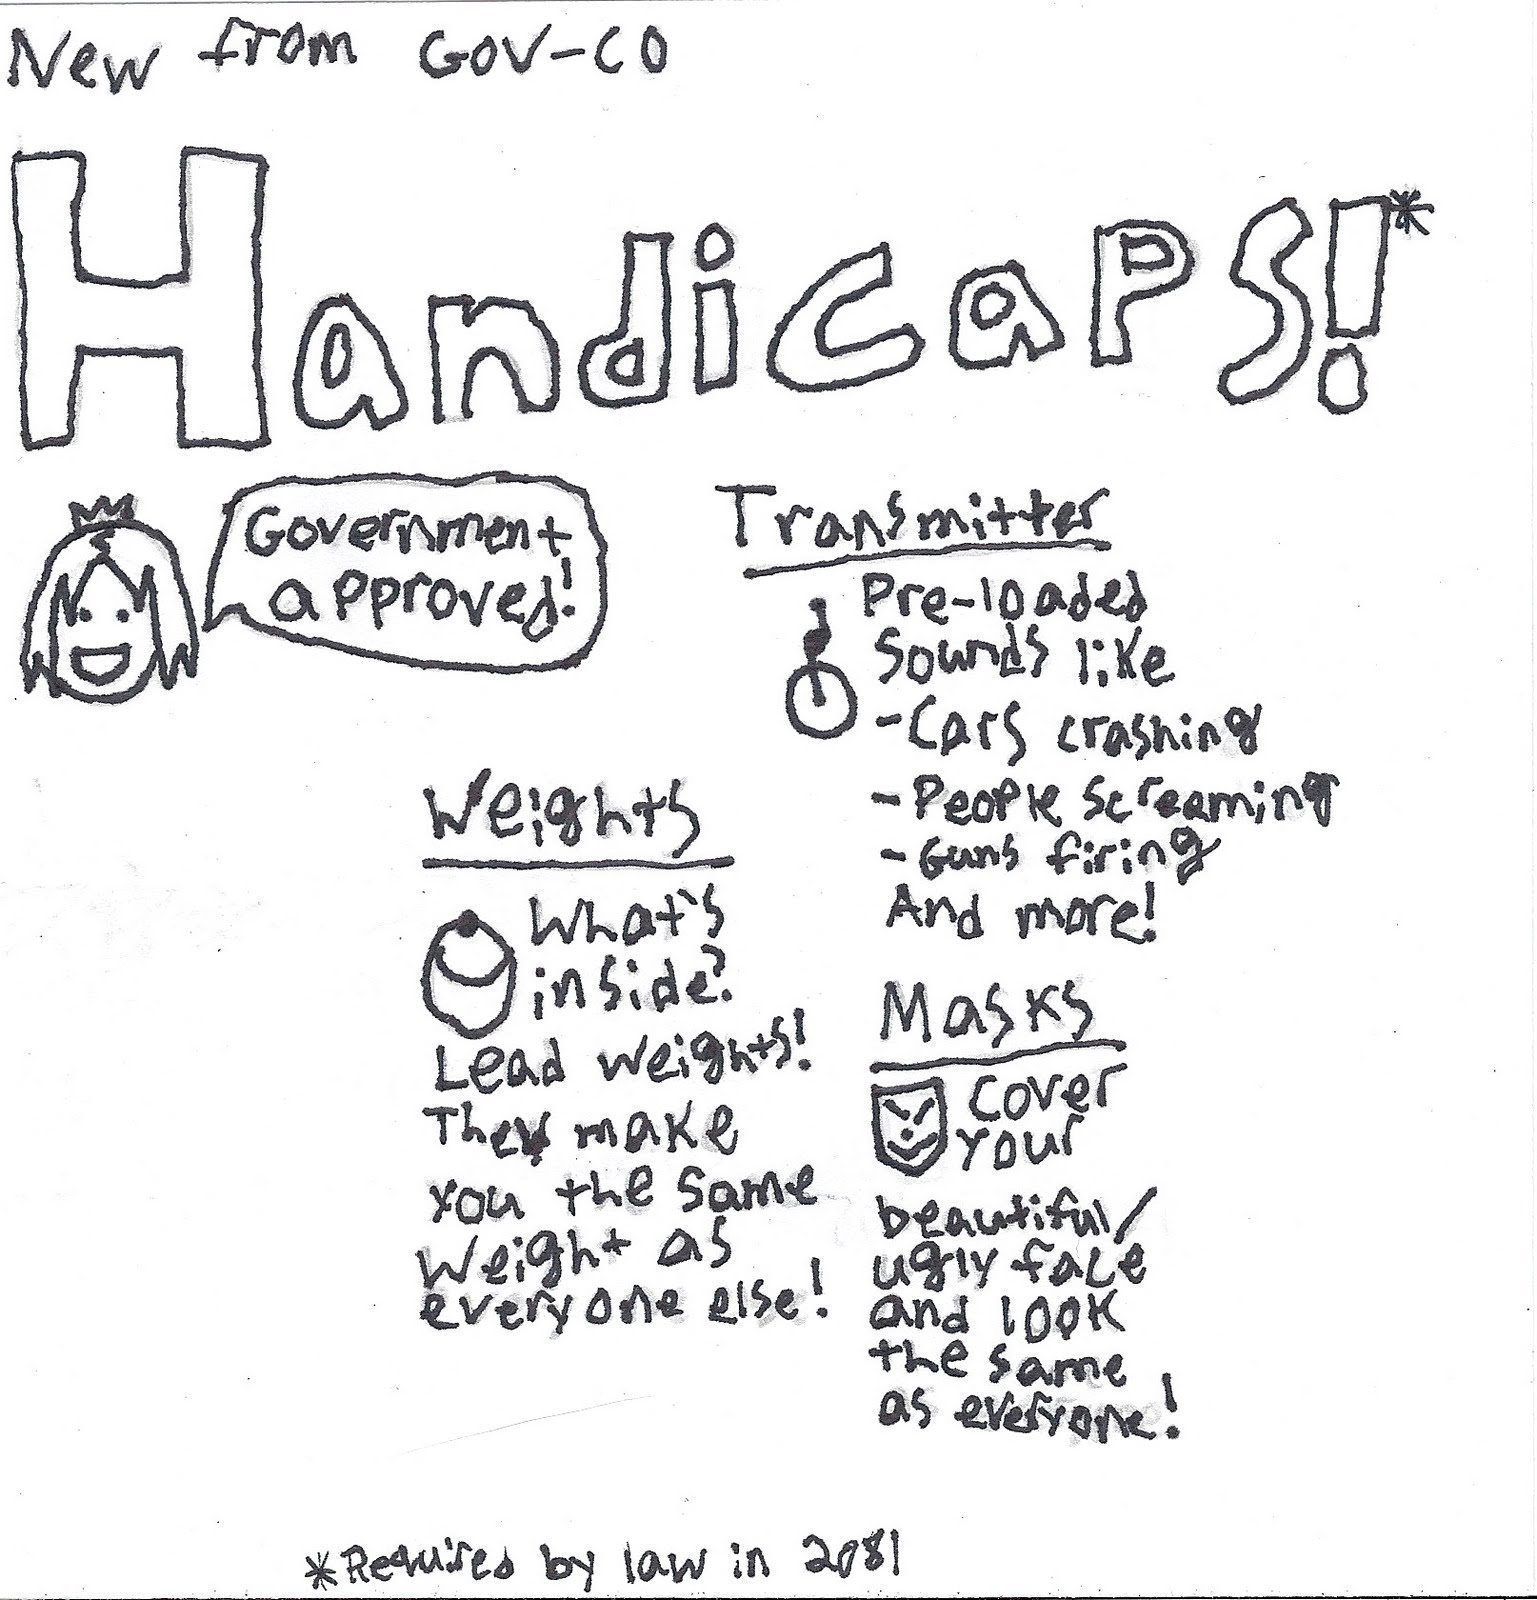 New from Gov-co
Handicaps!*
Government
approved!
Transmitter
Pre-loaded
sounds like
-Cars crashing
-People screaming
-Guns firing
And more!
Weights
What's
inside?
Lead weights!
They make
you the same
weight as
everyone else!
Masks
Cover
your
beautiful/
ugly face
and look
the same
as everyone!
*Required by law in 2081